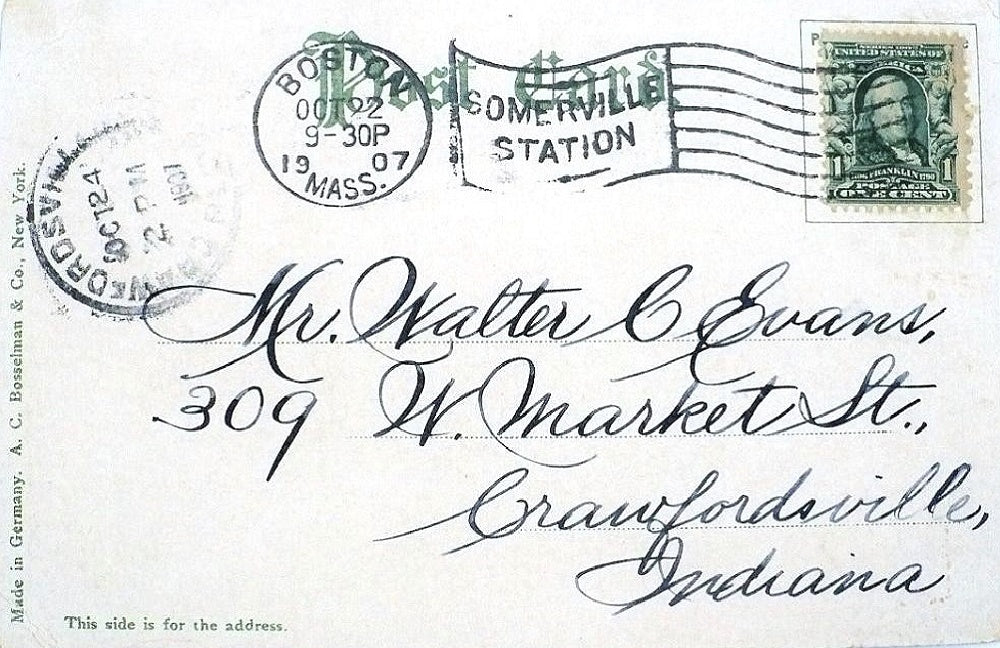 Post Card
BOSTON
OCT 22
9-30P
1907
MASS.
SOMERVILLE
STATION
UNITED STATES OF
1 FRANKLIN 1
POSTAGE
ONE CENT
OCT 24
2 PM
1907
Mr. Walter C Evans,
309 W. Market St.,
Crawfordsville,
Indiana
Made in Germany. A. C. Bosselman & Co., New York.
This side is for the address.